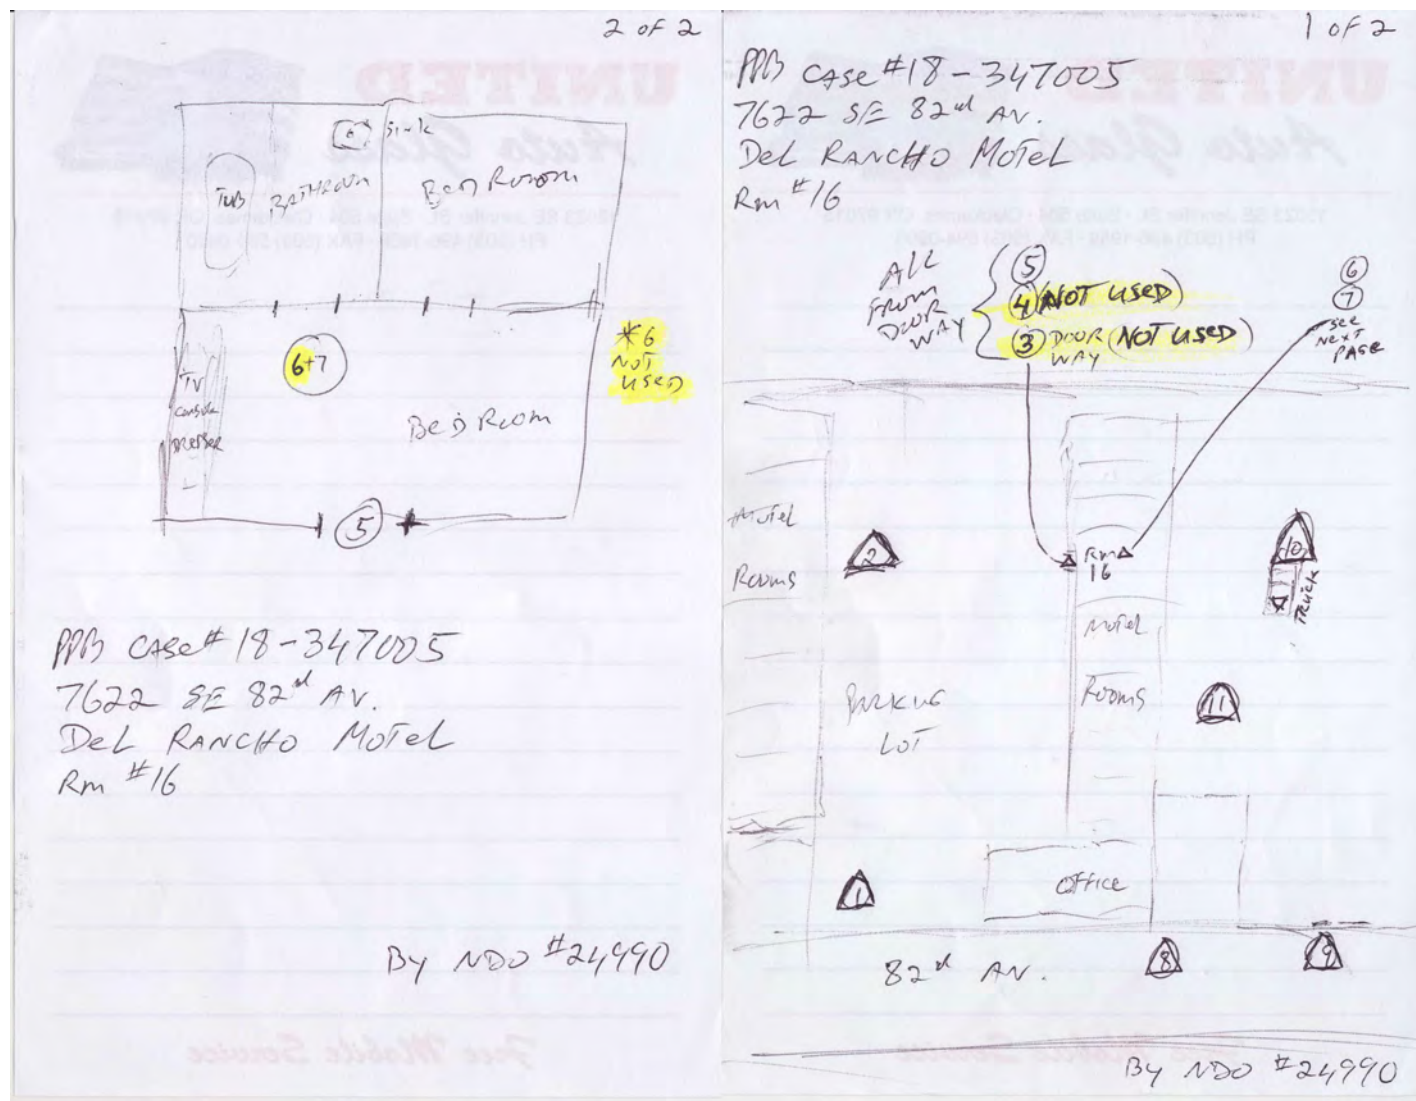 2 of 2
Sink
TUB
BATHROOM
BED ROOM
6+7
*6
NOT
USED
TV
CONSOLE
DRESSER
BED ROOM
5
PPB CASE# 18-347005
7622 SE 82nd AV.
DEL RANCHO MOTEL
Rm #16
By NDO #24990
1 of 2
PPB CASE #18-347005
7622 SE 82nd AV.
DEL RANCHO MOTEL
Rm #16
ALL
FROM
DOOR
WAY
5
4 (NOT USED)
3 DOOR WAY (NOT USED)
6
7
SEE
NEXT
PAGE
MOTEL
ROOMS
2
Rm
16
10
TRUCK
MOTEL
ROOMS
11
PARKING
LOT
1
OFFICE
82nd AV.
8
9
By NDO #24990